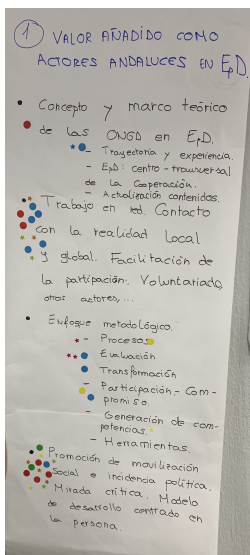 1 VALOR AÑADIDO COMO
ACTORES ANDALUCES EN EpD.
• Concepto y marco teórico
de las ONGD en EpD.
- Trayectoria y experiencia.
- EpD: centro-transversal
de la Cooperación.
- Actualización contenidos.
Trabajo en red. Contacto
con la realidad local
y global. Facilitación de
la partipación. Voluntariado,
otros actores,...
• Enfoque metodológico.
- Procesos
- Evaluación
Transformación
- Participación - Com-
promiso.
- Generación de com-
petencias.
- Herramientas.
Promoción de movilización
social e incidencia política.
Mirada crítica. Modelo
de desarrollo centrado en
la persona.